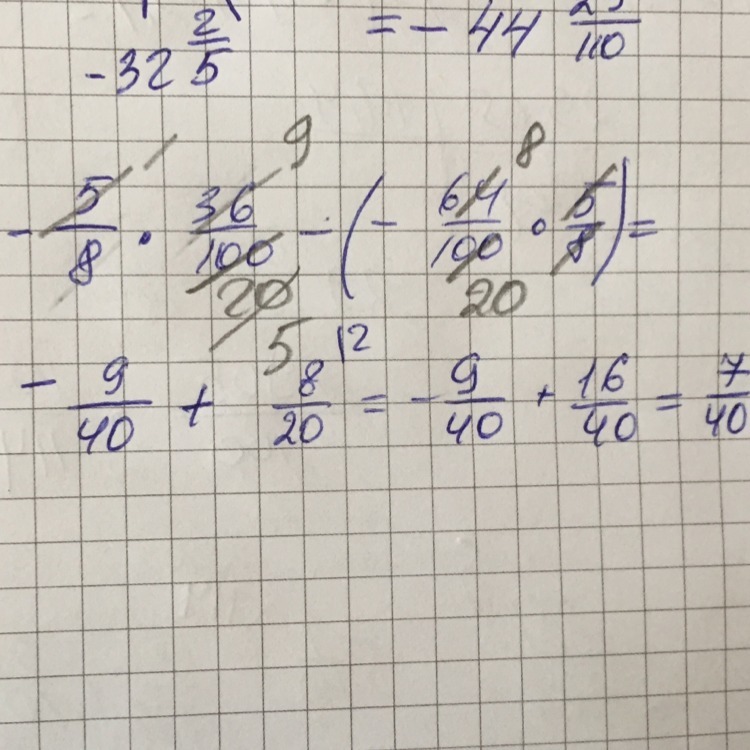 -32 2/5 = - 44 /110
- 5/8 · 36/100 - (- 64/100 · 5/8) =
9 8
20 20
5
- 9/40 + 8/20 |2 = - 9/40 + 16/40 = 7/40